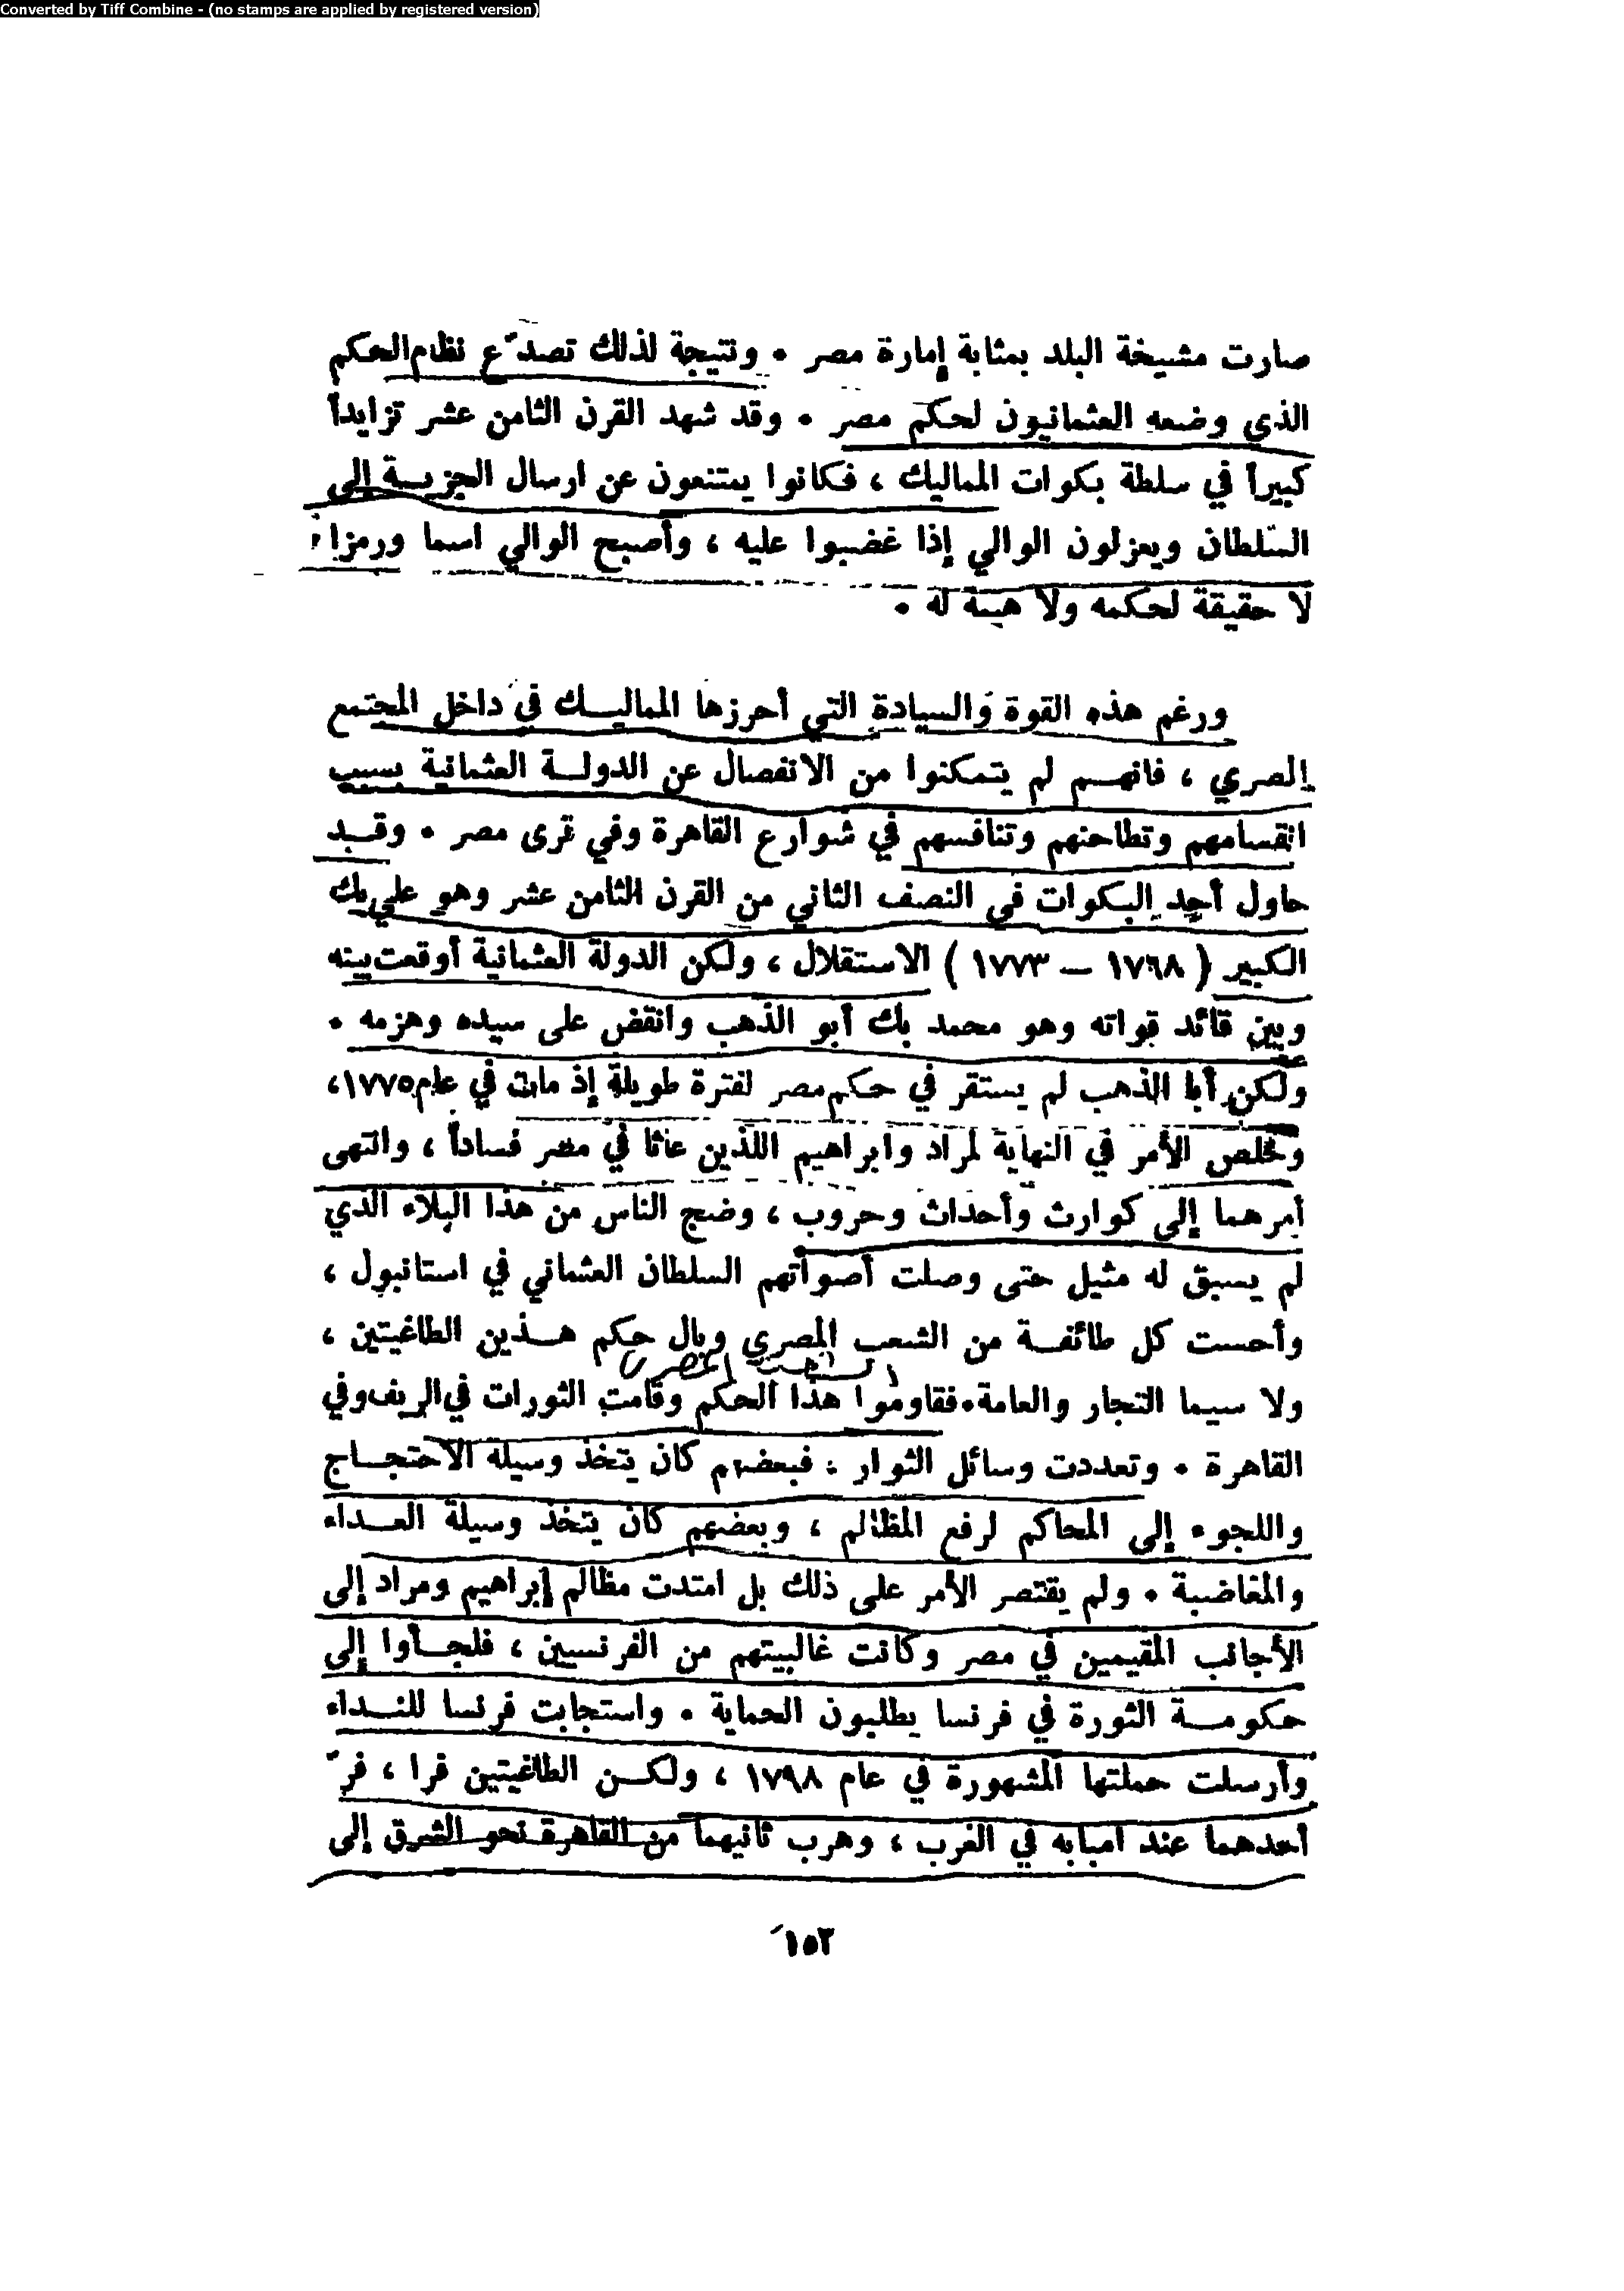 Converted by Tiff Combine - (no stamps are applied by registered version)
صارت مشيخة البلد بمثابة إمارة مصر . ونتيجة لذلك تصدّع نظام الحكم
الذي وضعه العثمانيون لحكم مصر . وقد شهد القرن الثامن عشر تزايداً
كبيراً في سلطة بكوات المماليك ، فكانوا يمتنعون عن ارسال الجزيـة إلى
السّلطان ويعزلون الوالي إذا غضبوا عليه ، وأصبح الوالي اسما ورمزا ،
لا حقيقة لحكمه ولا هيبة له .
ورغم هذه القوة والسيادة التي أحرزها المماليـك في داخل المجتمع
المصري ، فانهـم لم يتمكنوا من الانفصال عن الدولـة العثمانية بسبب
انقسامهم وتطاحنهم وتنافسهم في شوارع القاهرة وفي قرى مصر . وقـد
حاول أحد البكوات في النصف الثاني من القرن الثامن عشر وهو علي بك
الكبير ( ١٧٦٨ – ١٧٧٣ ) الاستقلال ، ولكن الدولة العثمانية أوقعت بينه
وبين قائد قواته وهو محمد بك أبو الذهب وانقض على سيده وهزمه .
ولكن أبا الذهب لم يستقر في حكم مصر لفترة طويلة إذ مات في عام ١٧٧٥،
وخلص الأمر في النهاية لمراد وابراهيم اللذين عاثا في مصر فساداً ، وانتهى
أمرهما إلى كوارث وأحداث وحروب ، وضج الناس من هذا البلاء الذي
لم يسبق له مثيل حتى وصلت أصواتهم السلطان العثماني في استانبول ،
وأحست كل طائفـة من الشعب المصري وبال حكم هـذين الطاغيتين ،
الشعب المصري
ولا سيما التجار والعامة . فقاوموا هذا الحكم وقامت الثورات في الريف وفي
القاهرة . وتعددت وسائل الثوار : فبعضهم كان يتخذ وسيلة الاحتجـاج
واللجوء إلى المحاكم لرفع المظالم ، وبعضهم كان يتخذ وسيلة العـداء
والمغاضبة . ولم يقتصر الأمر على ذلك بل امتدت مظالم إبراهيم ومراد إلى
الأجانب المقيمين في مصر وكانت غالبيتهم من الفرنسيين ، فلجـأوا إلى
حكومـة الثورة في فرنسا يطلبون الحماية . واستجابت فرنسا للنـداء
وأرسلت حملتها المشهورة في عام ١٧٩٨ ، ولكـن الطاغيتين فرا ، فرّ
أحدهما عند امبابه في الغرب ، وهرب ثانيهما من القاهرة نحو الشرق إلى
١٥٣